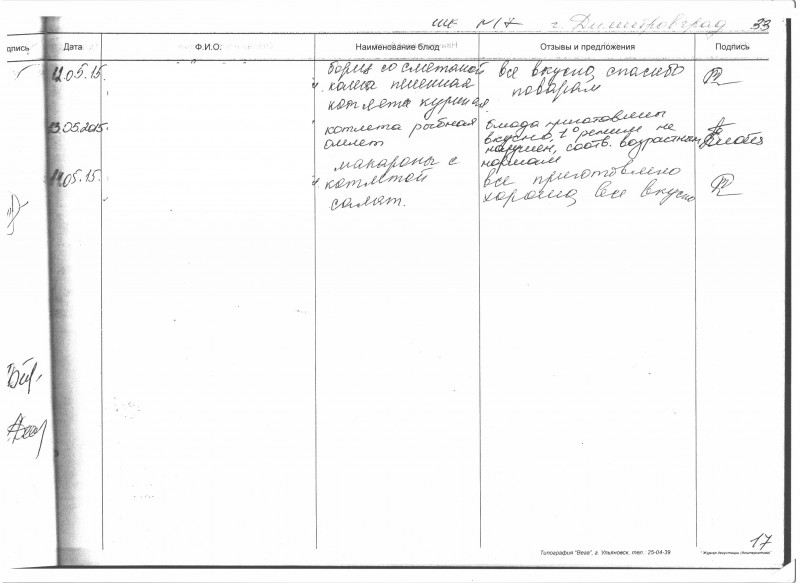 шк №17 г. Димитровград 33
одпись Дата Ф.И.О. Наименование блюд Отзывы и предложения Подпись
12.05.15. борщ со сметаной все вкусно, спасибо
каша пшенная поварам
котлета куриная
13.05.2015 котлета рыбная блюда приготовлены
омлет вкусно, t режим не
нарушен, соотв. возрастным
нормам
макароны с
14.05.15. котлетой все приготовлено
салат. хорошо, все вкусно
17
Типография "Вега", г. Ульяновск, тел.: 25-04-39